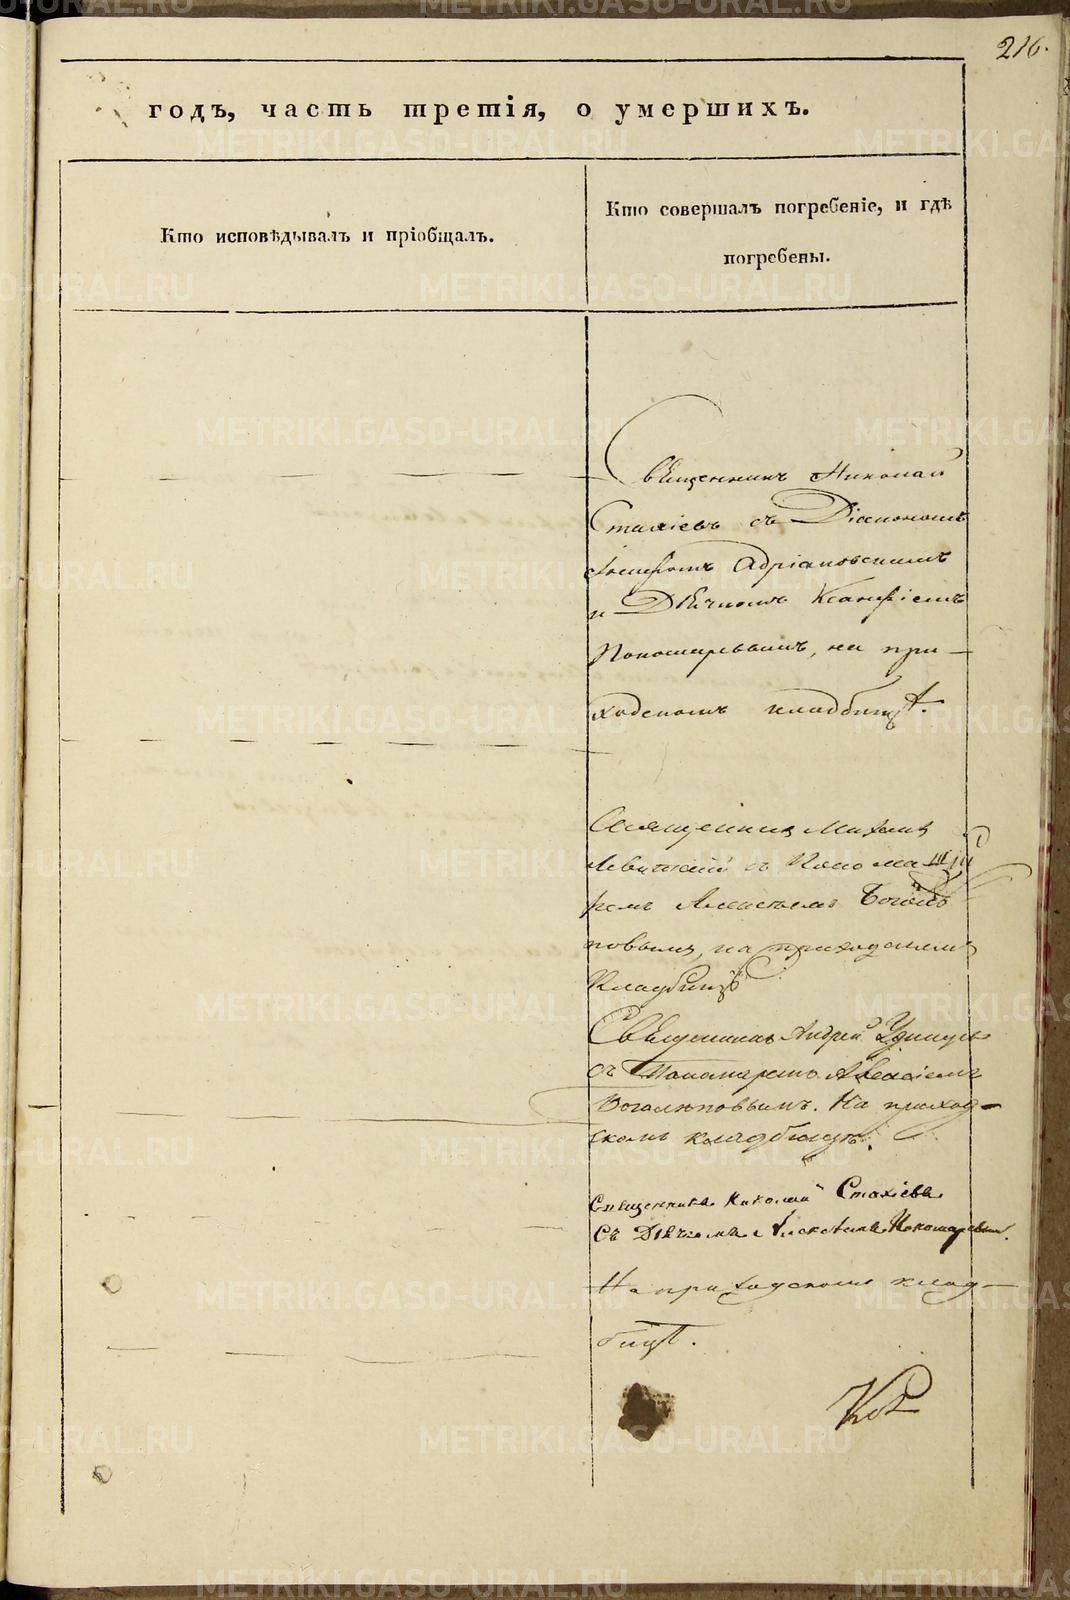 216.
годъ, часть третія, о умершихъ.
Кто исповѣдывалъ и пріобщалъ.
Кто совершалъ погребеніе, и гдѣ
погребены.
Священникъ Николай
Стахіевъ съ Діакономъ
Іосифомъ Адріановскимъ
и Дьячкомъ Ксанфіемъ
Пономаревымъ, на при-
ходскомъ кладбищѣ.
Священникъ Михаилъ
Левитскій съ Понома
ремъ Алексѣемъ Богом
повымъ, на приходскомъ
Кладбищѣ
Священникъ Андрей Удинцевъ
съ Пономаремъ Алексѣемъ
Боголѣповымъ. На приход-
скомъ кладбищѣ.
Священникъ Николай Стахіевъ
съ Дьячкомъ Пономаревым.
На приходскомъ клад-
бищѣ.
METRIKI.GASO-URAL.RU